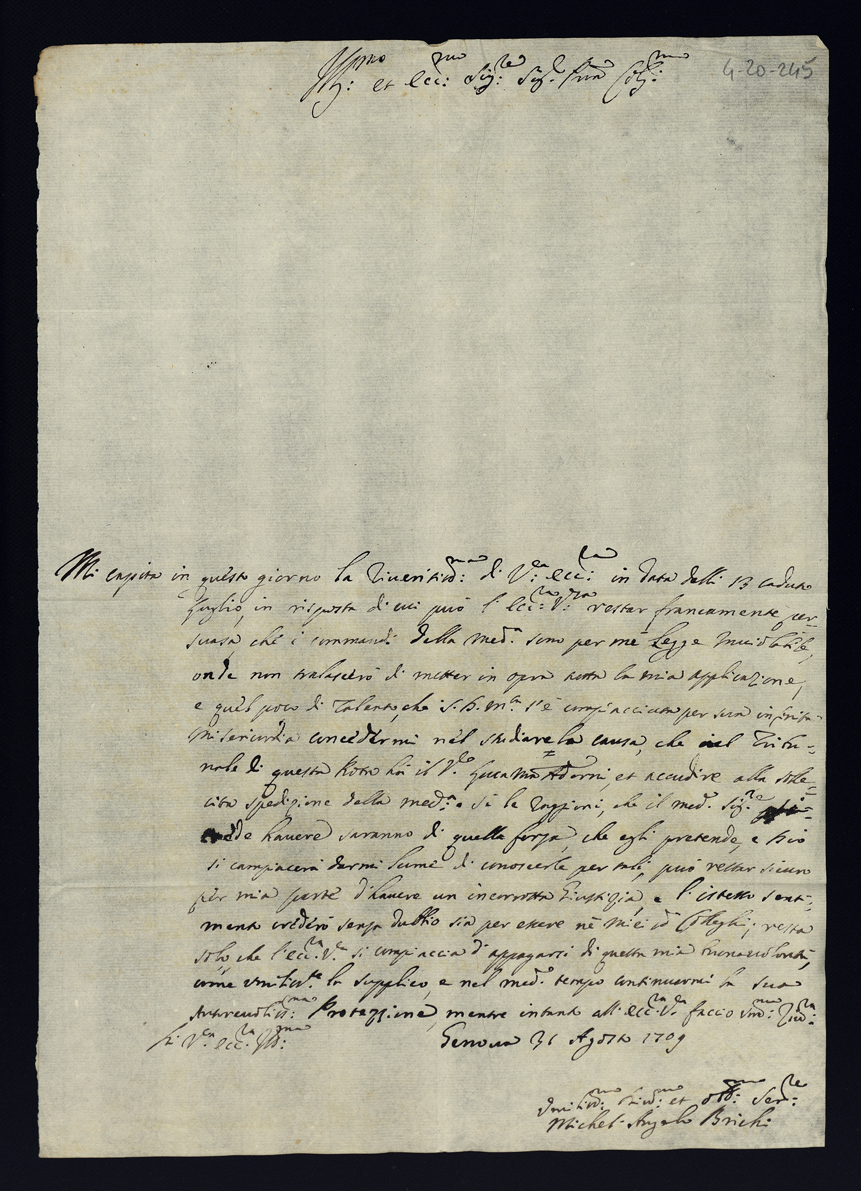 Ill:mo et Ecc:mo Sig:re Sig:r Pron Col:mo
4-20-245
Mi capita in questo giorno la riveritiss:ma di V:ra Ecc:za in data delli 13 caduto
Luglio, in risposta di cui può l'Ecc:za V:ra restar francamente per-
suasa, che i commandi della med:a sono per me Legge inviolabile,
onde non tralascierò di metter in opra tutta la mia applicazione,
e quel poco di talento, che S. D. M.tà s'è compiacciuta per sua infinita
misericordia concedermi nel studiare la causa, che nel Tribu-
nale di questa Rota hà il S.r Adorni, et accudire alla solle-
cita spedizione della med:a. Se le raggioni, che il med:o Sig:re
crede havere saranno di quella forza, che egli pretende, e Dio
si compiacerà darmi lume di conoscerle per tali, può restar sicuro
per mia parte d'havere un incorrotta Giustizia, e l'istesso senti-
mento crederò senza dubbio sia per essere ne miei SS:ri Colleghi; resta
solo che l'Ecc:za V:ra si compiaccia d'appagarsi di questa mia buona volontà,
come umilm:te la supplico, e nel med:o tempo continuarmi la sua
autorevoliss:ma Protezzione, mentre intanto all'Ecc:za V:ra faccio um:ma riv:za
Di V:ra Ecc:za Ill:ma
Genova 31 Agosto 1709
Umiliss:mo Div:mo et obb:mo Ser:re
Michel-Angelo Brichi